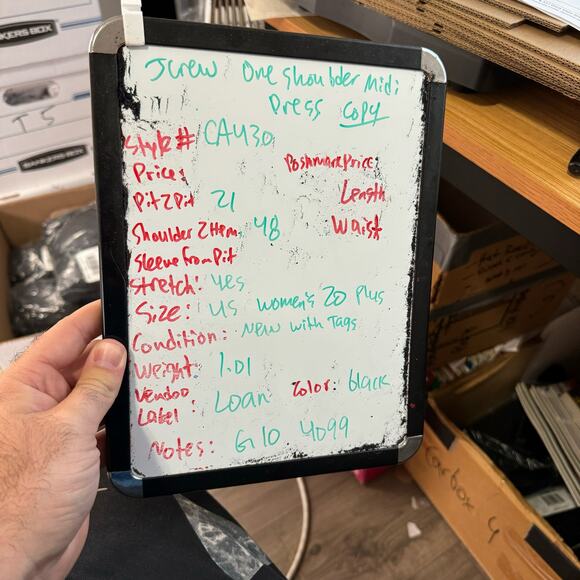 Jcrew One Shoulder Midi
Dress Copy
Style# CA430
Price:
Poshmark Price:
Pit2Pit 21
Length
Shoulder 2 Hem 48
Waist
Sleeve From Pit
Stretch: yes
Size: US Women's 20 Plus
Condition: New with Tags
Weight: 1.01
Vendoo
Label: Loan
Color: black
Notes: G10 4099
BANKERS BOX
T5
BANKERS BOX